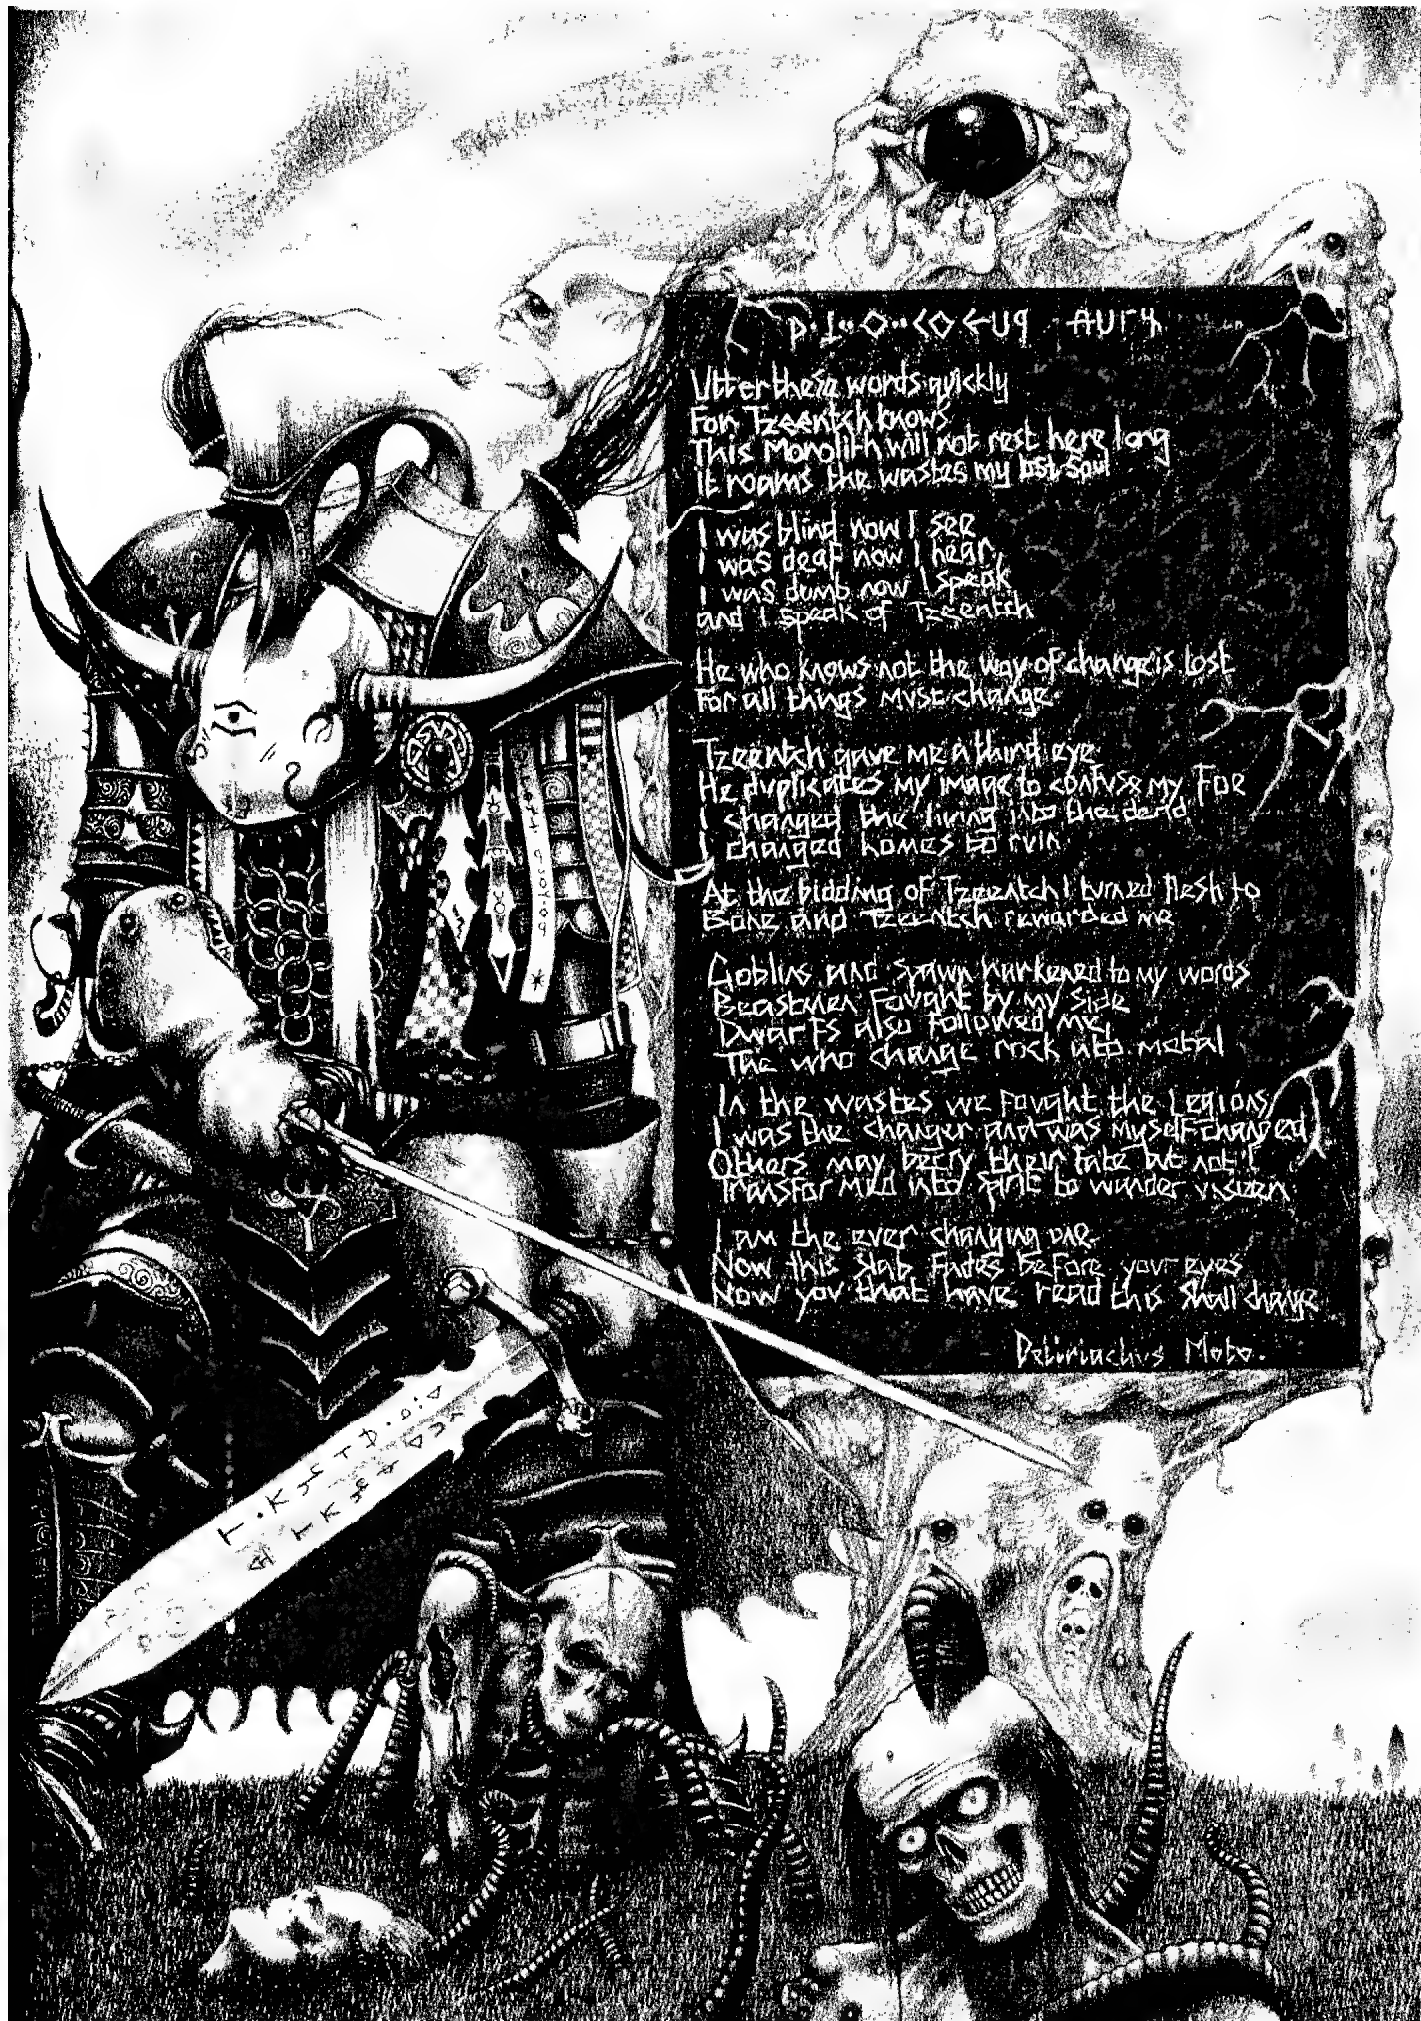 Utter these words quickly
For Tzeentch knows
This Monolith will not rest here long
it roams the wastes my lost soul
I was blind now I see
I was deaf now I hear
I was dumb now I speak
and I speak of Tzeentch
He who knows not the way of change is lost
For all things must change
Tzeentch gave me a third eye
He duplicates my image to confuse my Foe
I changed the living into the dead
I changed homes to ruin
At the bidding of Tzeentch I turned flesh to
Bone and Tzeentch rewarded me
Goblins and Spawn harkened to my words
Beastmen Fought by my Side
Dwarfs also Followed me
The who change rock into metal
In the wastes we Fought the Legions
I was the changer and was myself changed
Others may their fate but not I
Transformed into to wander
I am the ever changing one
Now this Slab Fades beFore your eyes
Now you that have read this Shall change
Moto.